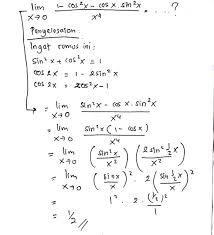 lim x→0 1 - cos²x - cos x . sin²x / x⁴ . . . . ?
Penyelesaian :
Ingat rumus ini :
sin²x + cos²x = 1
cos 2x = 1 - 2 sin²x
cos 2x = 2cos²x - 1
= lim x→0 sin²x - cos x . sin²x / x⁴
= lim x→0 sin²x (1 - cos x) / x⁴
= lim x→0 (sin²x / x²) (2 sin² ½x / x²)
= lim x→0 (sin x / x)² . 2 (sin ½x / x)²
= 1² . 2 . (½)² / 1
= ½ //